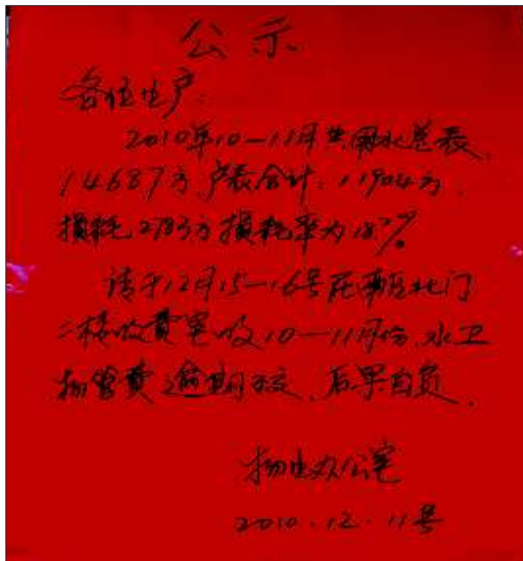 公示
各位住户:
2010年10—11月共用水总表
14687方 户表合计:11904方
损耗2783方损耗率为18.7%
请于12月15—16号在南区北门
二楼收费室收10—11月份水卫
物管费逾期不交、后果自负.
物业办公室
2010.12.11号